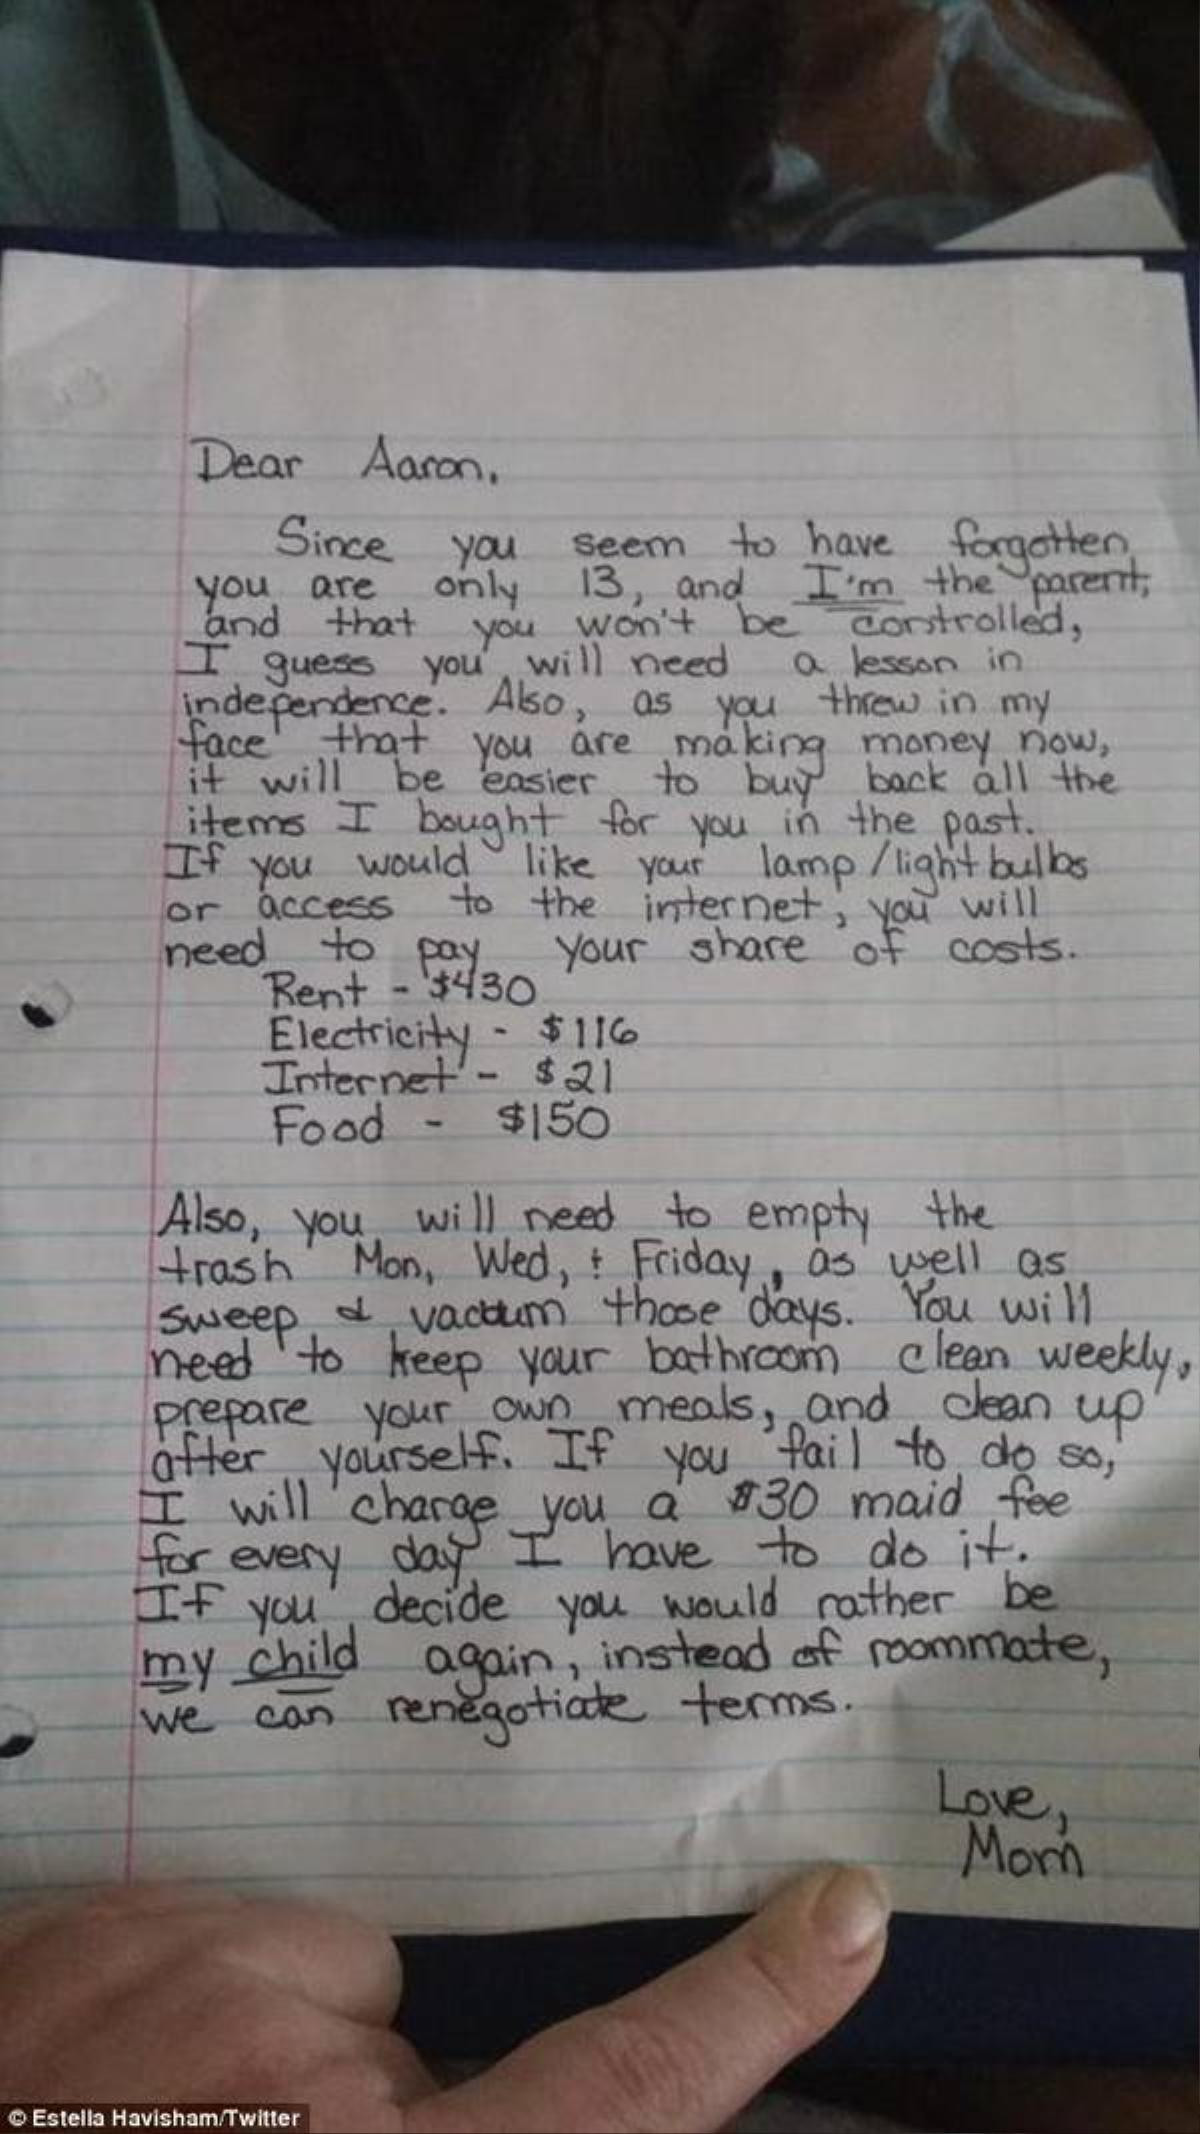 Dear Aaron,
Since you seem to have forgotten
you are only 13, and I'm the parent,
and that you won't be controlled,
I guess you will need a lesson in
independence. Also, as you threw in my
face that you are making money now,
it will be easier to buy back all the
items I bought for you in the past.
If you would like your lamp/lightbulbs
or access to the internet, you will
need to pay your share of costs.
Rent - $430
Electricity - $116
Internet - $21
Food - $150
Also, you will need to empty the
trash Mon, Wed, + Friday, as well as
sweep & vacuum those days. You will
need to keep your bathroom clean weekly,
prepare your own meals, and clean up
after yourself. If you fail to do so,
I will charge you a $30 maid fee
for every day I have to do it.
If you decide you would rather be
my child again, instead of roommate,
we can renegotiate terms.
Love,
Mom
© Estella Havisham/Twitter